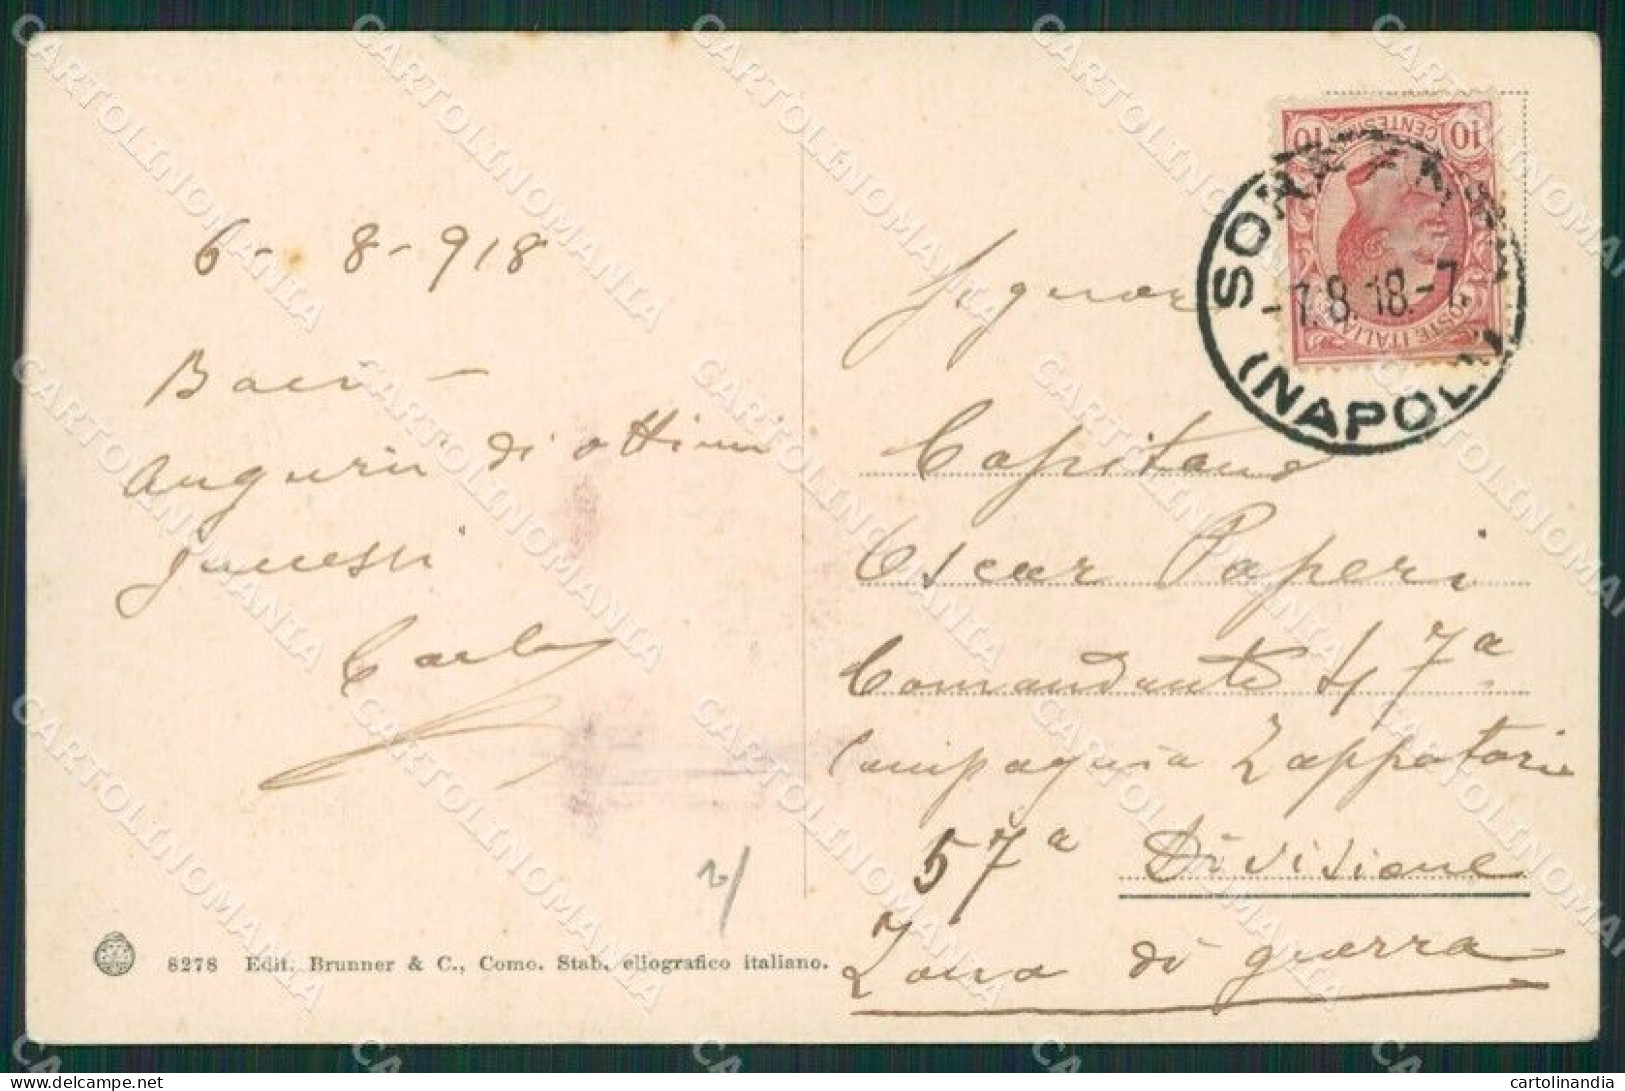 6 - 8 - 918
Baci -
Auguri di ottimi
successi
Carlo
8278 Edit. Brunner & C., Como. Stab. eliografico italiano.
10 CENTESIMI 10
POSTE ITALIANE
-7.8.18.-7
(NAPOLI)
Signor
Capitano
Oscar Paperi
Comandante 47ª
Compagnia Zappatori
57ª Divisione
Zona di guerra
CARTOLINOMANIA
cartolinandia